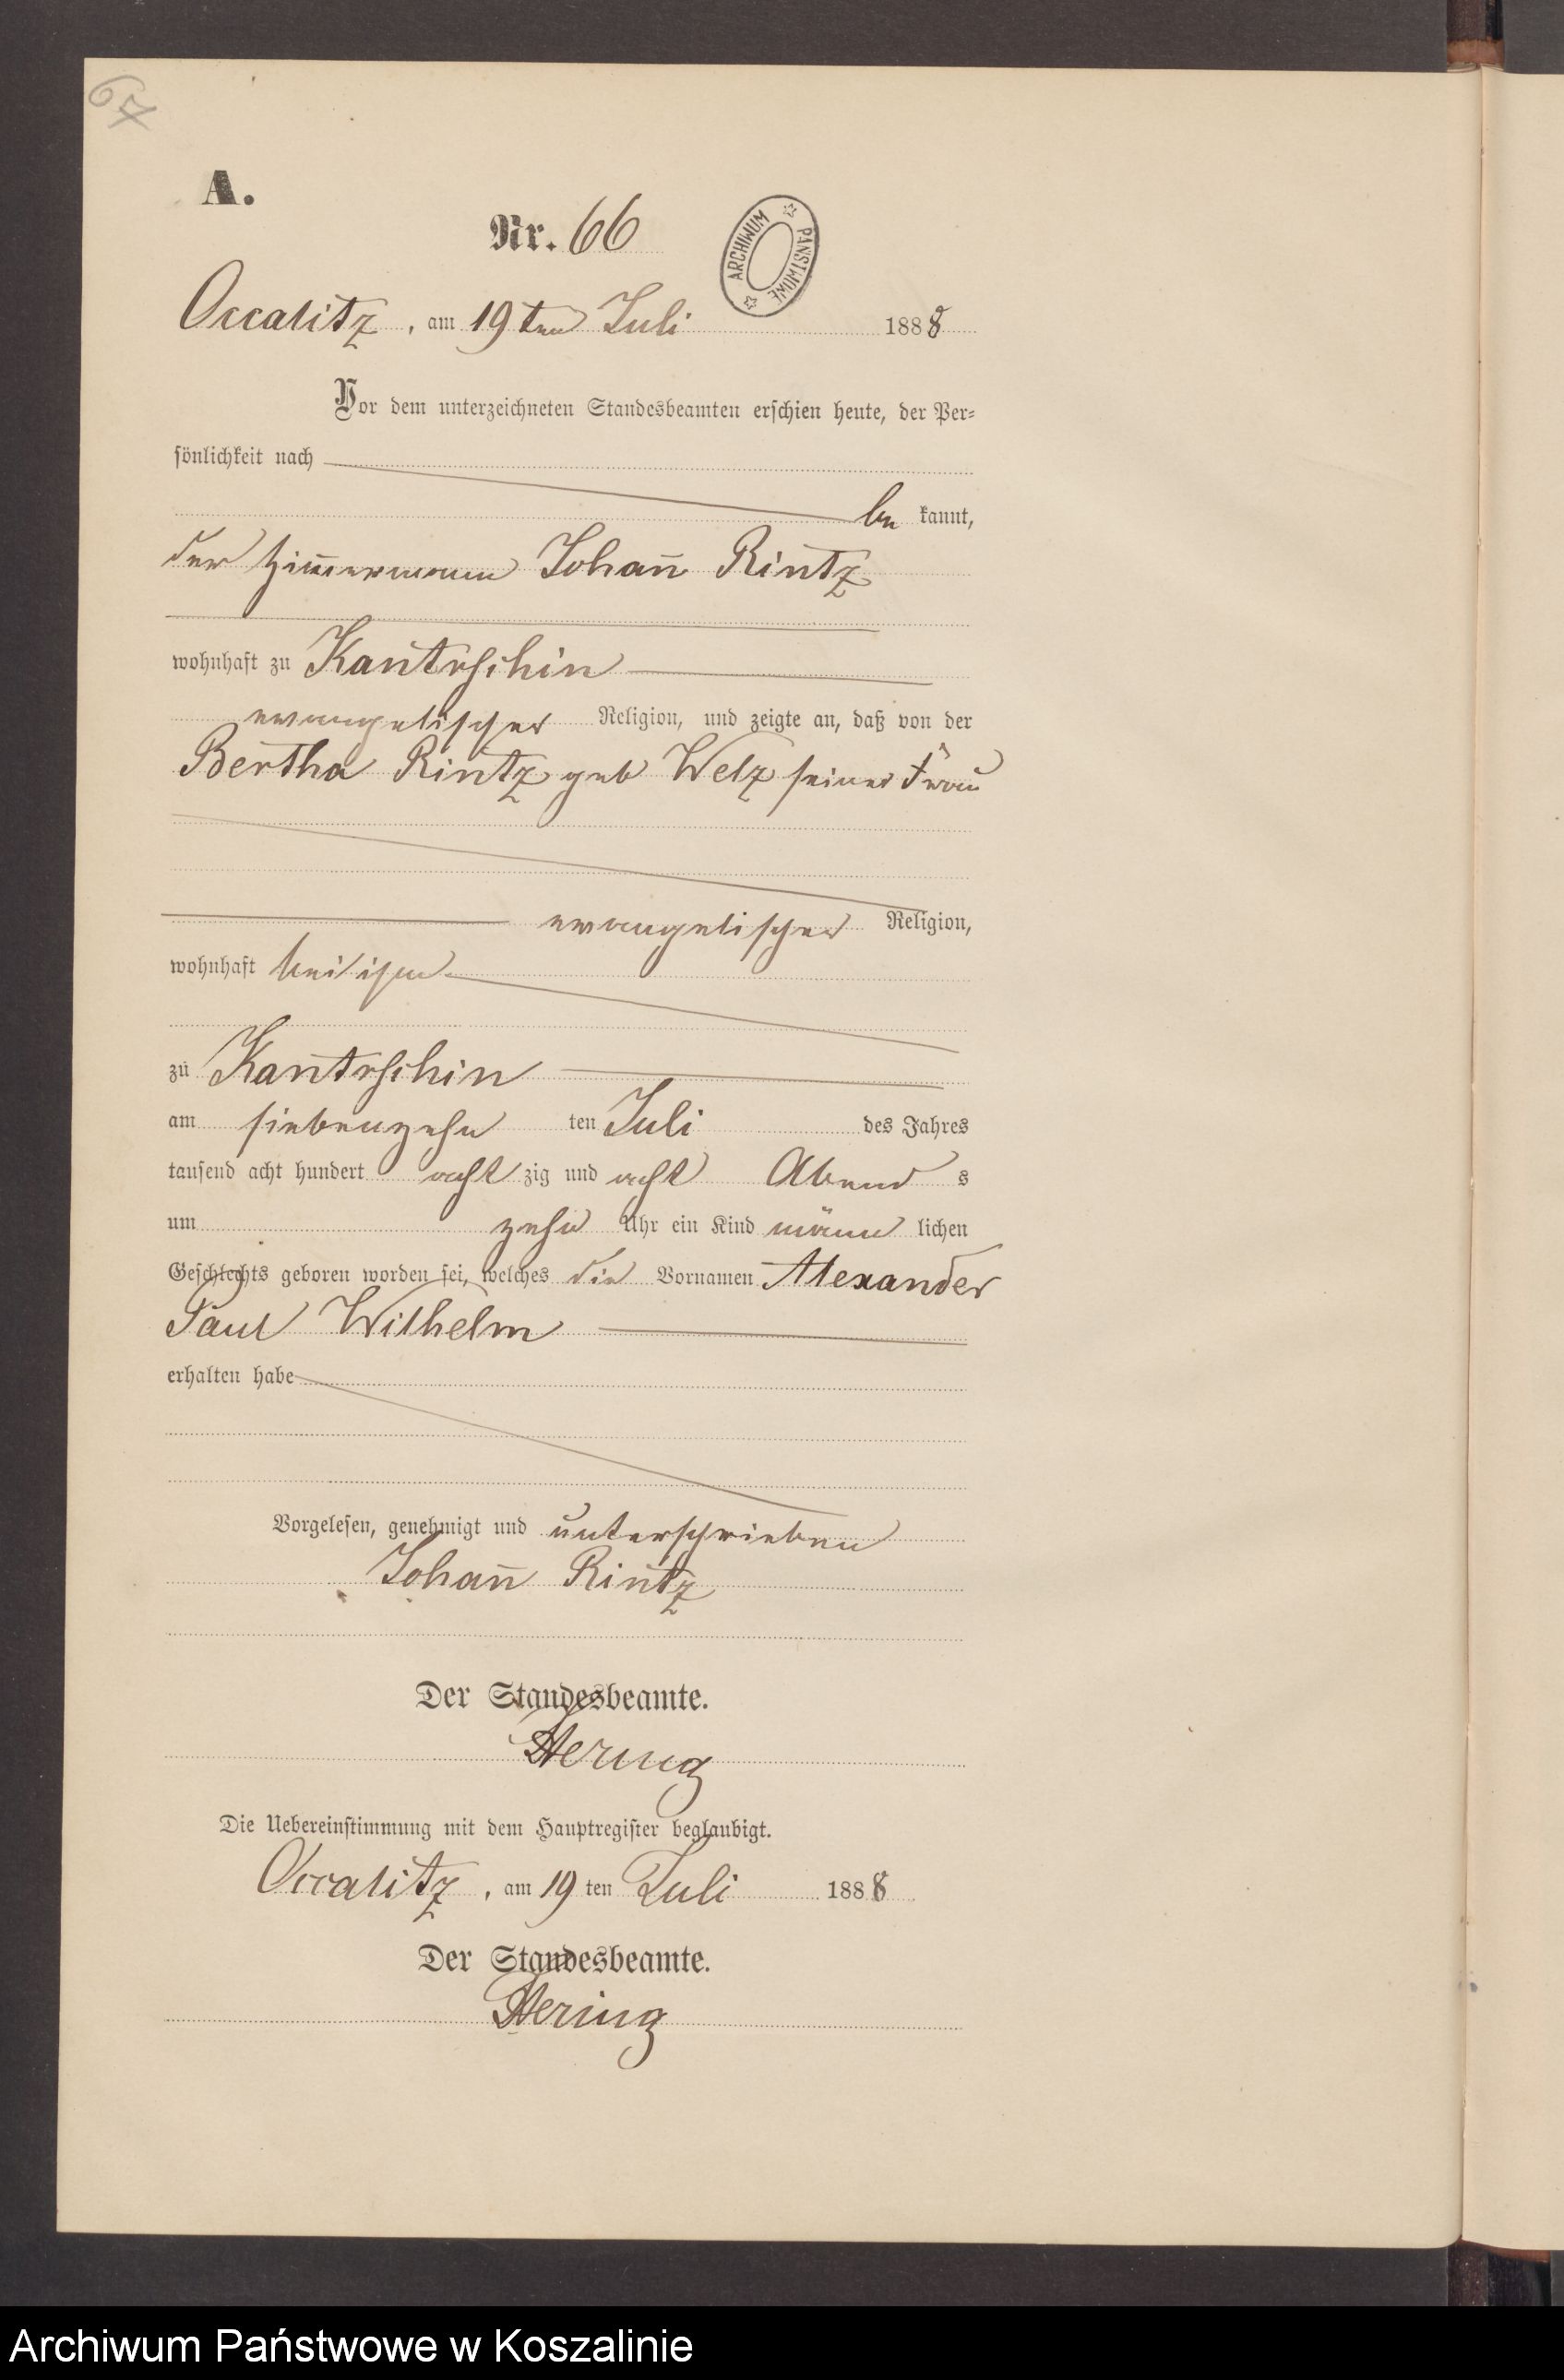 67
A.
Nr. 66
ARCHIWUM PAŃSTWOWE
Occalitz, am 19ten Juli 1888
Vor dem unterzeichneten Standesbeamten erschien heute, der Per=
sönlichkeit nach
be kannt,
der Zim̄ermann Johan̄ Rintz
wohnhaft zu Kantrschin
evangelischer Religion, und zeigte an, daß von der
Bertha Rintz geb Welz seiner Frau
evangelischer Religion,
wohnhaft bei ihm
zu Kantrschin
am siebenzehn ten Juli des Jahres
tausend acht hundert acht zig und acht Abend s
um zehn Uhr ein Kind männ lichen
Geschlechts geboren worden sei, welches die Vornamen Alexander
Paul Wilhelm
erhalten habe
Vorgelesen, genehmigt und unterschrieben
Johan̄ Rintz
Der Standesbeamte.
Hering
Die Uebereinstimmung mit dem Hauptregister beglaubigt.
Occalitz, am 19 ten Juli 1888
Der Standesbeamte.
Hering
Archiwum Państwowe w Koszalinie